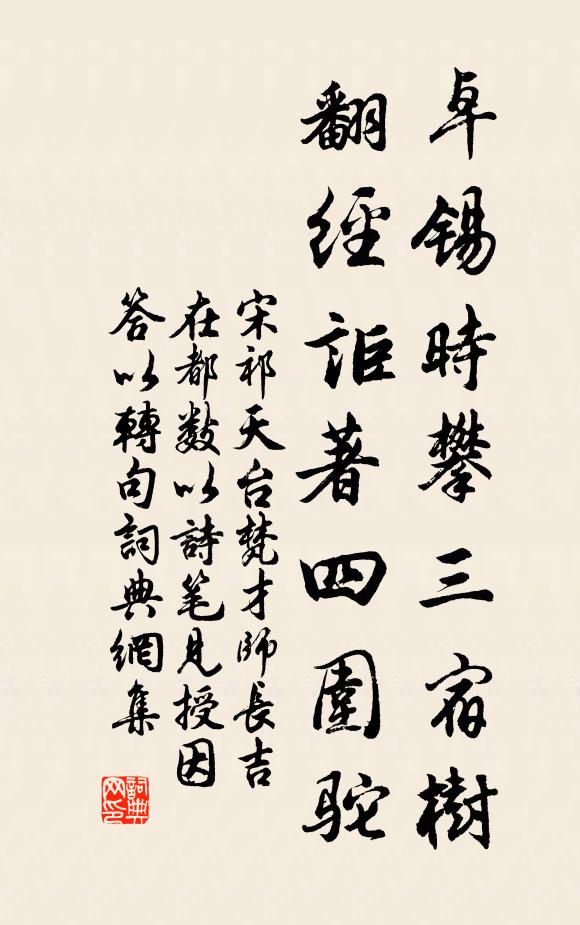 卓錫時攀三宿樹
翻經詎著四圍駝
宋祁天台梵才師長吉
在都數以詩笔見授因
答以轉句詞典網集
詞典网印